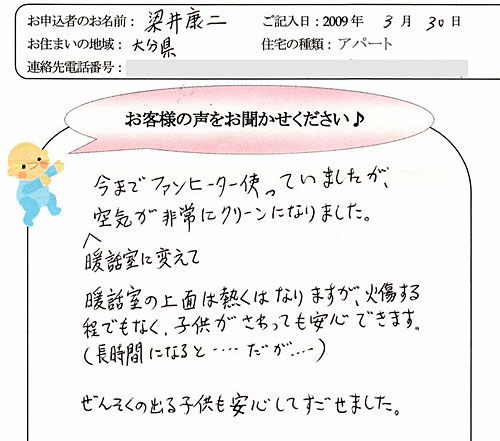 お申込者のお名前: 梁井康二 ご記入日:2009年 3月 30日
お住まいの地域: 大分県 住宅の種類:アパート
連絡先電話番号:
お客様の声をお聞かせください♪
今までファンヒーター使っていましたが、
空気が非常にクリーンになりました。
暖話室に変えて
暖話室の上面は熱くはなりますが、火傷する
程でもなく、子供がさわっても安心できます。
(長時間になると……だが…)
ぜんそくの出る子供も安心してすごせました。